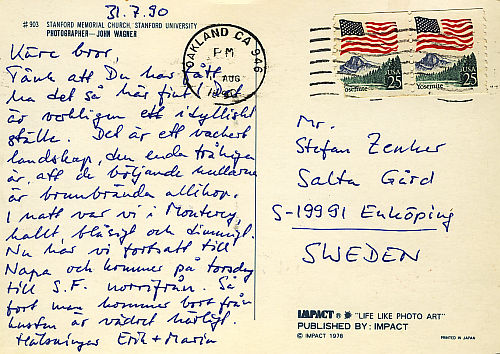 31.7.90
# 903 STANFORD MEMORIAL CHURCH, STANFORD UNIVERSITY
PHOTOGRAPHER—JOHN WAGNER
Käre bror
Tänk att Du har fått
ha det så här fint! Det
är verkligen ett idylliskt
ställe. Det är ett vackert
landskap, den enda tråkiga
är att de böljande kullarna
är brunbrända allihop.
I natt var vi i Monterey,
kallt, blåsigt och dimmigt.
Nu har vi fortsatt till
Napa och kommer på torsdag
till S.F. norrifrån. Så
fort man kommer bort från
kusten är vädret härligt.
Hälsningar Erik + Maria
OAKLAND CA 946
PM
AUG
USA 25
Yosemite
USA 25
Yosemite
Mr.
Stefan Zenker
Salta Gård
S-19991 Enköping
SWEDEN
IMPACT ® "LIFE LIKE PHOTO ART"
PUBLISHED BY: IMPACT
© IMPACT 1978
PRINTED IN JAPAN